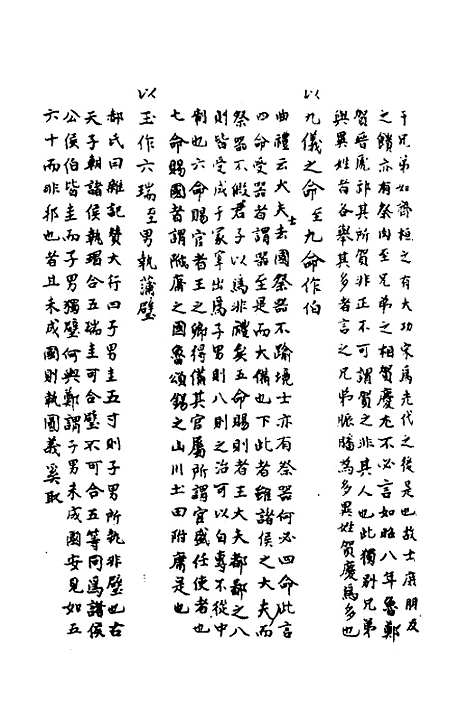 于兄弟如齊桓之有大功宋為先代之後是也故士庶朋友
之饋亦有祭肉至兄弟之相賀慶尤不必言如昭八年魯鄭
賀晉虒詐其所賀非正不可謂賀之非其人也此獨別兄弟
與異姓者各舉其多者言之兄弟脤膰為多異姓賀慶為多也
以九儀之命至九命作伯
曲禮云大夫士去國祭器不踰境士亦有祭器何必四命此言
四命受器者謂器至是而大備也下此者雖諸侯之大夫而
祭器不假君子以為非禮矣五命賜則者王大夫都鄙之八
則皆受成于冢宰出為子男則八則之治可以自專不從中
制也六命賜官者王之卿得備其官屬所謂官盛任使者也
七命賜國者謂附庸之國魯頌錫之山川土田附庸是也
以玉作六瑞至男執蒲璧
郝氏曰雜記贊大行曰子男圭五寸則子男所執非璧也右
天子朝諸侯執瑁合五瑞圭可合璧不可合五等同為諸侯
公侯伯皆圭而子男獨璧何與鄭謂子男未成國安見如五
六十而非邦也者且未成國則執圜義奚取